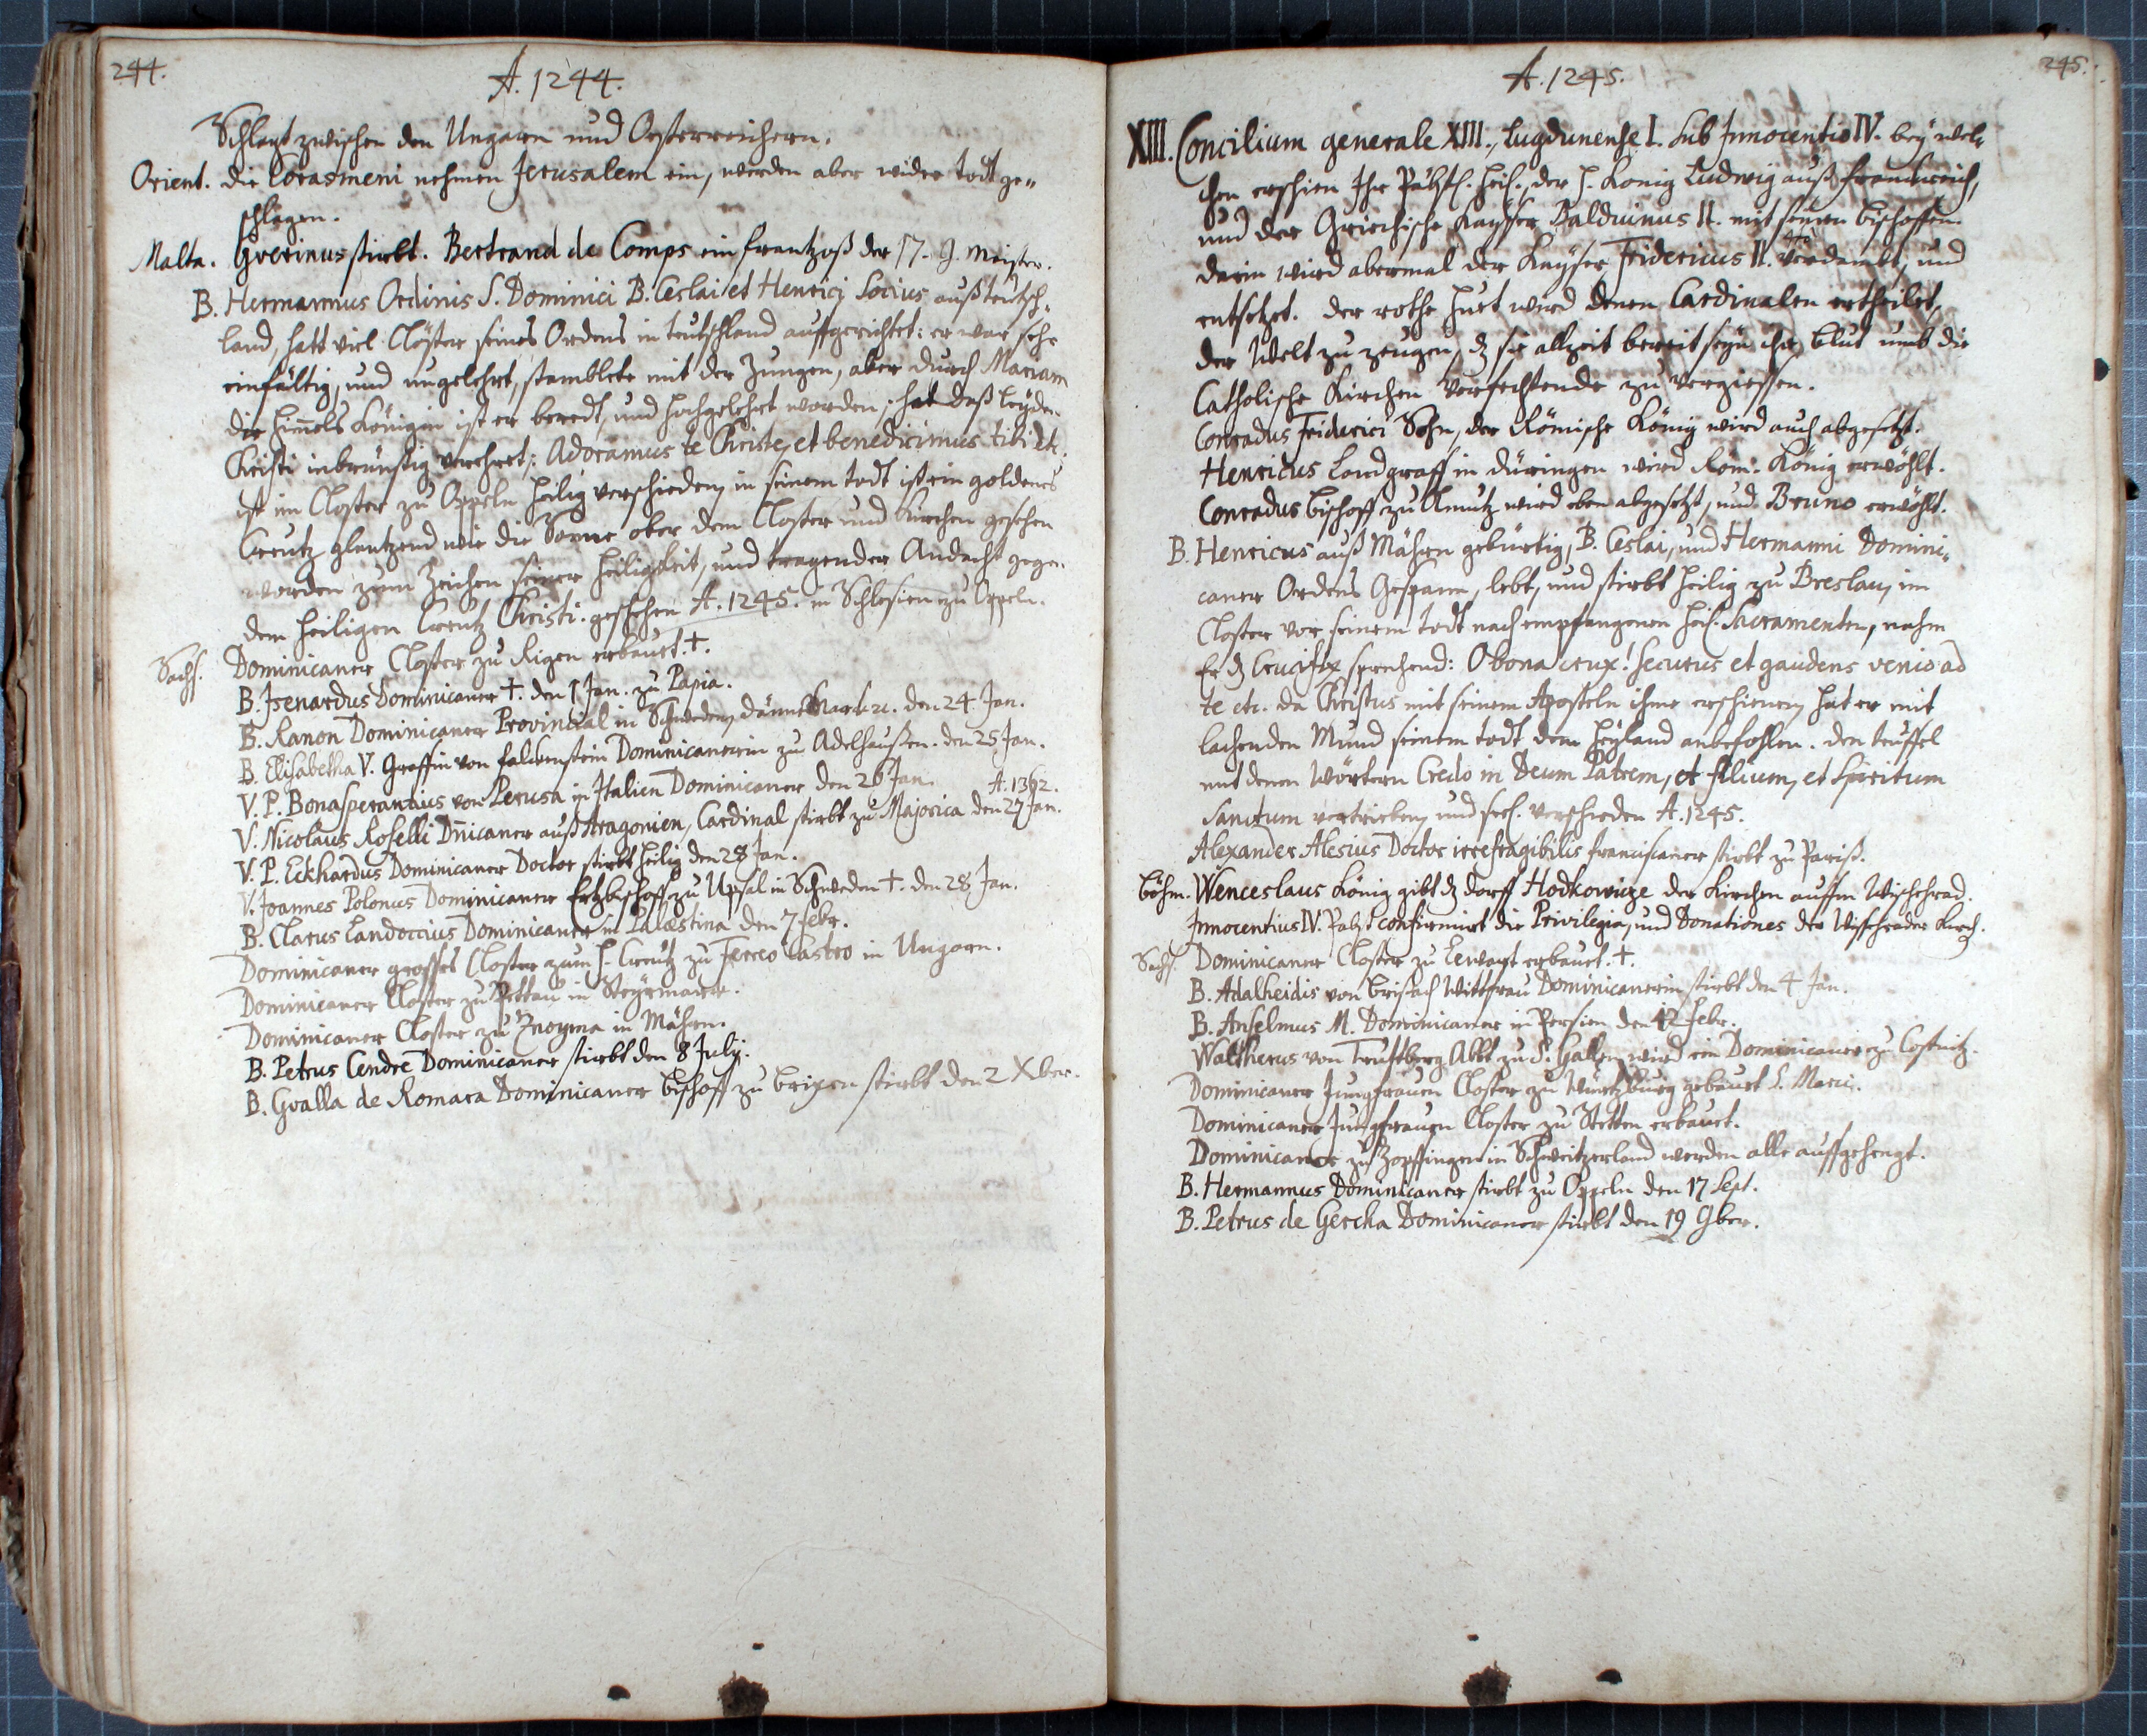 244.
A. 1244.
Schlagt zwischen den Ungarn und Oesterreichern.
Orient. die Corasmeni nehmen Jerusalem ein, werden aber wider todt ge„
schlagen.
Malta. Gverinus stirbt. Bertrand de Comps ein frantzoß der 17. G. Meister.
B. Hermannus Ordinis S. Dominici B. Ceslai et Henrici Socius auß teütsch„
land, hatt viel Clöster seines Ordens in teutschland auffgerichtet: er war sehr
einfältig, und ungelehrt, stamblete mit der Zungen, aber durch Mariam
die Himels Königin ist er beredt, und hochgelehrt worden; hat daß leyden
Christi inbrünstig verehret; Adoramus te Christe, et benedicimus tibi etc.
ist im Closter zu Oppeln heilig verschieden, in seinem todt ist ein goldenes
Creutz glantzend wie die Sonne ober dem Closter und Kirchen gesehen
worden zum Zeichen seiner heiligkeit, und tragender Andacht gege„
dem heiligen Creutz Christi. geschehen A. 1245. in Schlesien zu Oppeln.
Sachs. Dominicaner Closter zu Rigen erbauet. †.
B. Isenardus Dominicaner †. den 1 Jan. zu Papia.
B. Ranon Dominicaner Provincial in Schweden, dännemark ec. den 24 Jan.
B. Elisabetha V. Graffin von falckenstein Dominicanerin zu Adelhaußen. den 25 Jan.
V. P. Bonasperantius von Perusa in Italien Dominicaner den 26 Jan. A. 1362.
V. Nicolaus Roselli Dnicaner auß Aragonien, Cardinal stirbt zu Majorica den 27 Jan.
V. P. Eckhardus Dominicaner Doctor stirbt heilig den 28 Jan.
V. Joannes Polonus Dominicaner Ertzbischoff zu Upsal in Schweden †. den 28 Jan.
B. Clarus Landoccius Dominicaner in Palæstina den 7 Febr.
Dominicaner grosses Closter zum H. Creutz zu Ferreo Castro in Ungarn.
Dominicaner Closter zu Pettau in Steyrmarck.
Dominicaner Closter zu Znoyma in Mähren.
B. Petrus Cendre Dominicaner stirbt den 8 July.
B. Gvalla de Romara Dominicaner Bischoff zu Brixen stirbt den 2 Xber.
245.
A. 1245.
XIII. Concilium generale XIII., Lugdunense I. sub Innocentio IV. bey wel„
chen erschien Ihr Päbstl. heil., der H. König Ludwig auß franckreich,
und der Griechische Kayser Balduinus II. mit seinen Bischoffen.
darin wird abermal der Kayser Fridericus II. verdambt, und
entsetzt. der rothe hutt wird denen Cardinalen ertheilet,
der Welt zu zeugen, dz sie allzeit bereit seyn ihr blut umb die
Catholische Kirchen verfechtende zu vergiessen.
Conradus Friderici Sohn, der Römische König wird auch abgesetzt.
Henricus Landgraff in düringen wird Röm. König erwöhlt.
Conradus Bischoff zu Olmutz wird eben abgesetzt, und Bruno erwöhlt.
B. Henricus auß Mähren gebürtig, B. Ceslai, und Hermanni Domini„
caner Ordens Gespann, lebt, und stirbt heilig zu Breslau, im
Closter vor seinem todt nach empfangenen heil. Sacramenten, nahm
Er dz Crucifix sprechend: O bona crux! securus et gaudens venio ad
te etc. da Christus mit seinem Aposteln ihme erschienen, hat er mit
lachenden Mund seinem todt dem heyland anbefohlen. den teuffel
mit denen wörtern Credo in Deum Patrem, et filium, et Spiritum
Sanctum vertrieben, und seel. verschieden A. 1245.
Alexander Alesius Doctor irrefragibilis franciscaner stirbt zu Pariß.
Böhm. Wenceslaus König gibt dz dorff Hodkowicze der Kirchen auffm Wischehrad.
Innocentius IV. Pabst confirmirt die Privilegia, und Donationes der Wischrader Kirch.
Sachs. Dominicaner Closter zu Lewart erbauet. †.
B. Adalheidis von Brisach Wittfrau Dominicanerin stirbt den 4 Jan.
B. Anselmus M. Dominicaner in Persien den 12 Febr.
Waltherus von Truttberg Abbt zu S. Gallen wird ein Dominicaner zu Costnitz.
Dominicaner Jungfrauen Closter zu Würtzburg gebauet S. Marci.
Dominicaner Jungfrauen Closter zu Stetten erbauet.
Dominicaner zu Zopffingen in Schweitzerland werden alle auffgehengt.
B. Hermannus Dominicaner stirbt zu Oppeln den 17 Sept.
B. Petrus de Gercha Dominicaner stirbt den 19 9ber.